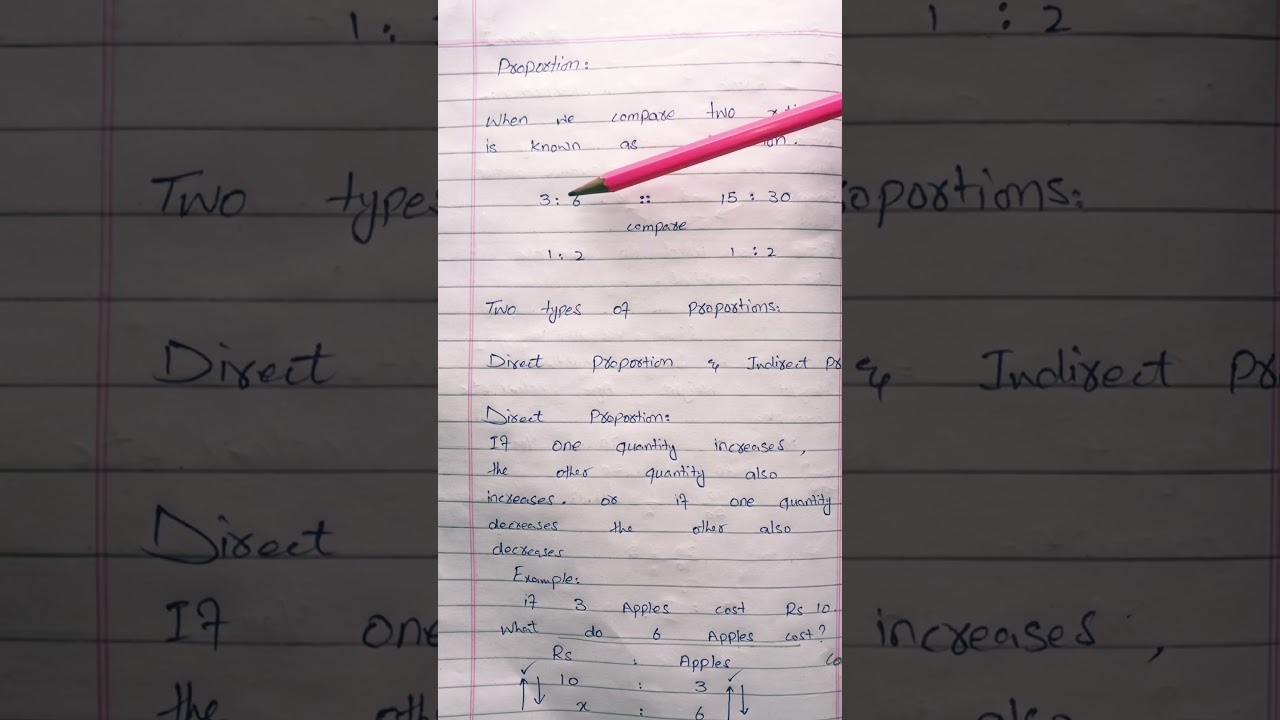 Proportion:
When we compare two
is known as
3 : 6 :: 15 : 30
compare
1 : 2 1 : 2
Two types of proportions:
Direct proportion & Indirect pr
Direct proportion:
If one quantity increases,
the other quantity also
increases. or if one quantity
decreases the other also
decreases
Example:
if 3 Apples cost Rs 10.
What do 6 Apples cost?
Rs : Apples
10 : 3
x : 6